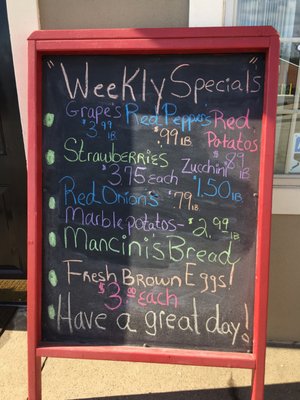 "Weekly Specials"
Grape's Red Peppers Red
$3.99 LB $.99 LB Potatos
Strawberries $.89 LB
$3.75 Each Zucchini $1.50 LB
Red Onion's $.79 LB
Marble potatos - $2.99 LB
Mancini's Bread
Fresh Brown Eggs!
$3.00 each
Have a great day!